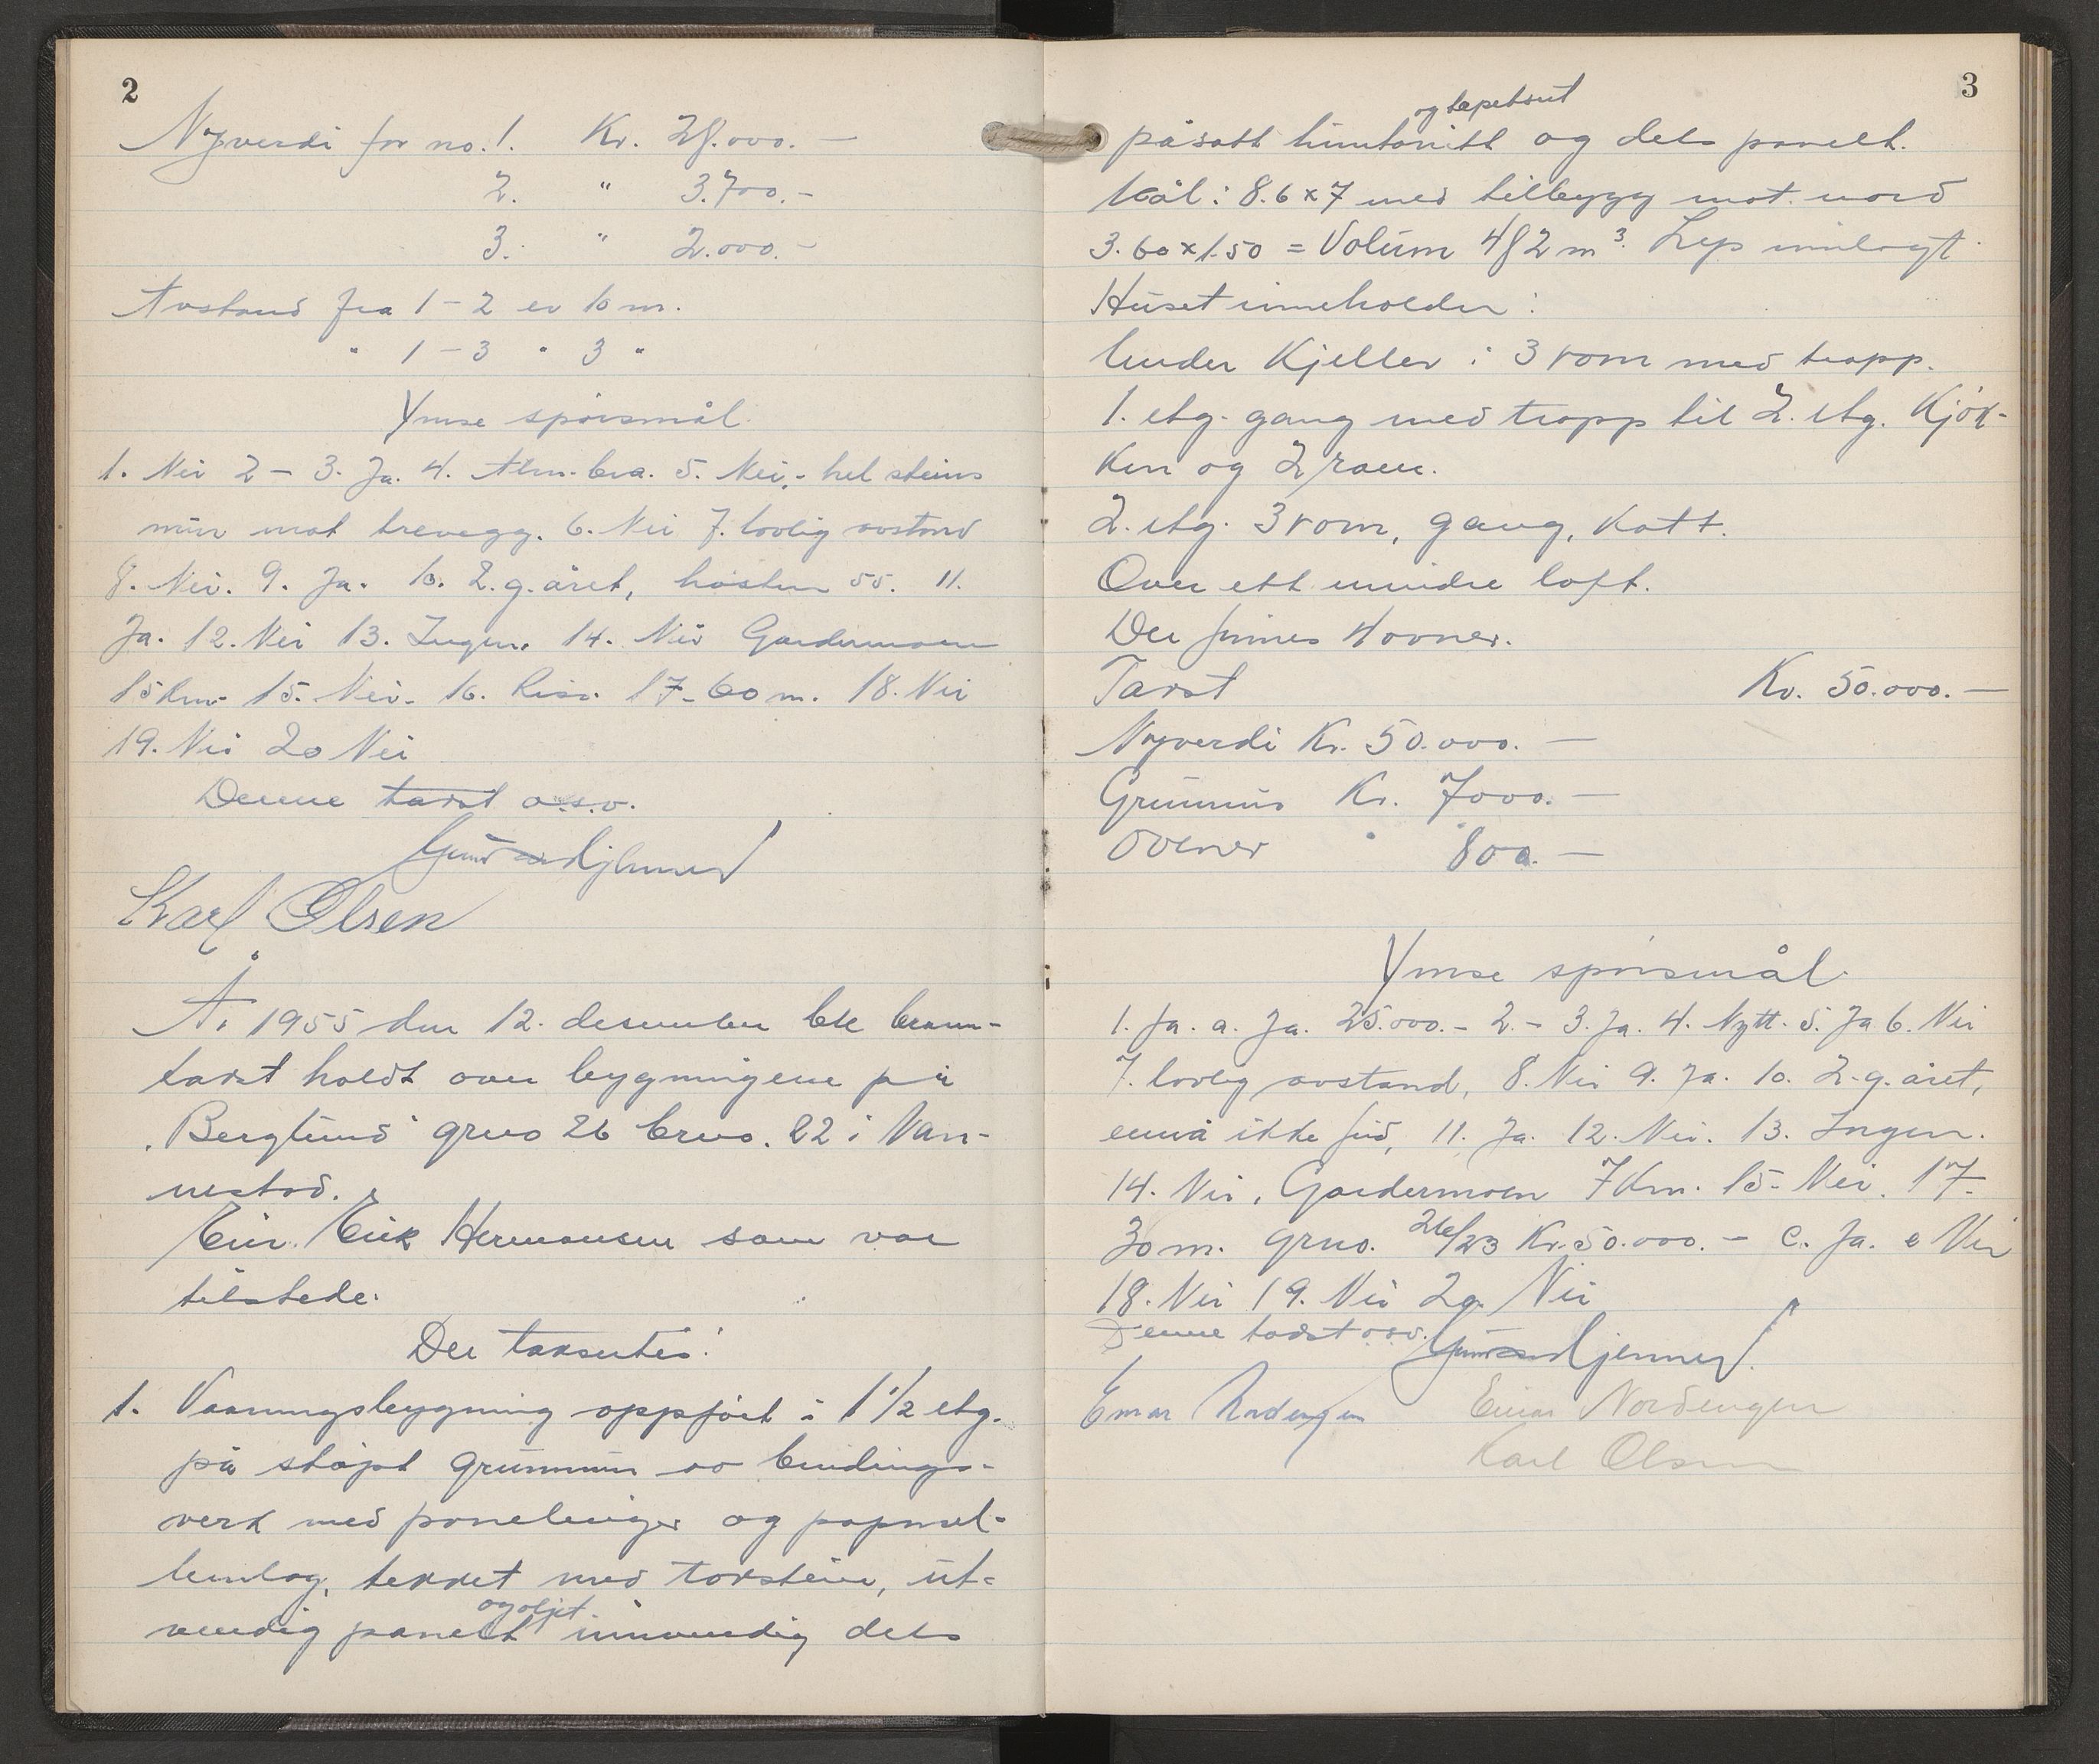 2
Nyverdi for no. 1. Kr. 28.000. —
2. " 3.700. -
3. " 2.000. -
Avstand fra 1 - 2 er 10 m.
" 1 - 3 " 3 "
Ymse spörsmål
1. Nei 2 - 3. Ja. 4. Alm. bra. 5. Nei, - hel steins
mur mot trevegg. 6. Nei 7. lovlig avstand
8. Nei. 9. Ja. 10. 2. g. året, hösten 55. 11.
Ja. 12. Nei 13. Ingen. 14. Nei Gardermoen
15 km. 15. Nei. 16. 17 - 60 m. 18. Nei
19. Nei 20 Nei
Denne takst o.s.v.
Karl Olsen
År 1955 den 12. desember ble brann-
takst holdt over bygningene på
"Berglund" grno 26 brno. 22 i Van-
nestad.
Eier. Erik Hermansen som var
tilstede.
Der taksertes:
1. Vaaningsbygning oppfört i 1 1/2 etg.
på stöpt grunnmur av bindings-
verk med panelinger og papmel-
lemlag, tekket med takstein, ut-
og oljet
vendig panelt innvendig dels
3
og tapetsert
påsatt huntonitt og dels panelt.
Mål: 8.6 x 7 med tilbygg mot nord
3.60 x 1.50 = Volum 482 m³. Lys innlagt.
Huset inneholder:
Under Kjeller: 3 rom med trapp.
1. etg. gang med trapp til 2. etg. Kjök-
ken og 2 rom.
2. etg. 3 rom, gang, kott.
Over ett mindre loft.
Der finnes 4 ovner.
Takst Kr. 50.000. —
Nyverdi Kr. 50.000. —
Grunnmur Kr. 7000. —
Ovener " 800. —
Ymse spörsmål
1. Ja. a. Ja. 25.000. - 2. - 3. Ja. 4. Nytt. 5. Ja 6. Nei
7. lovlig avstand, 8. Nei 9. Ja. 10. 2. g. året,
ennå ikke feid, 11. Ja. 12. Nei. 13. Ingen.
14. Nei, Gardermoen 7 km. 15. Nei. 17 -
30 m. grno. 26/23 Kr. 50.000. - c. Ja. e Nei
18. Nei 19. Nei 20. Nei
Denne takst osv.
Einar Nordengen Einar Nordengen
Karl Olsen